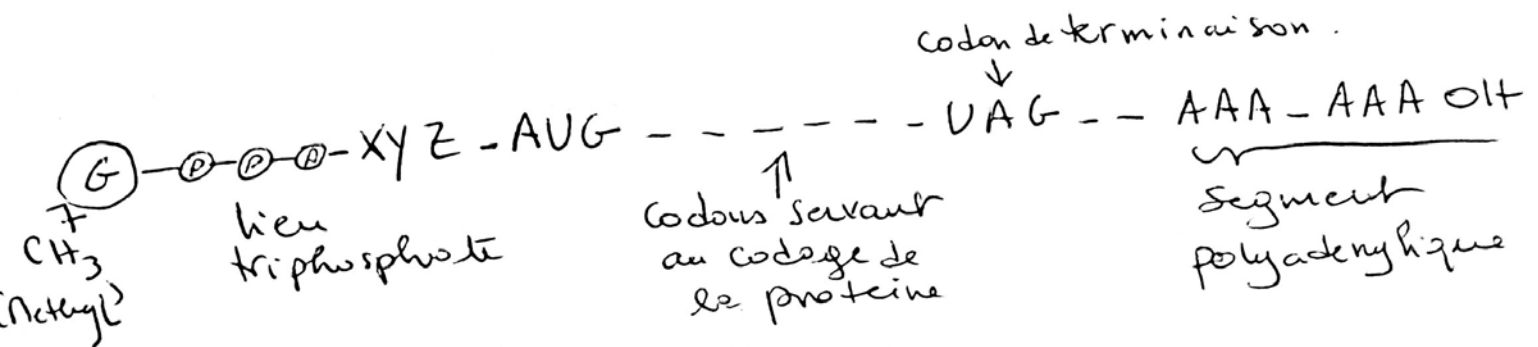 codon de terminaison.
G-P-P-P-XYZ-AUG-------UAG--AAA-AAA OH
7
CH3
(Methyl)
lien
triphosphate
Codons servant
au codage de
la proteine
Segment
polyadenylique